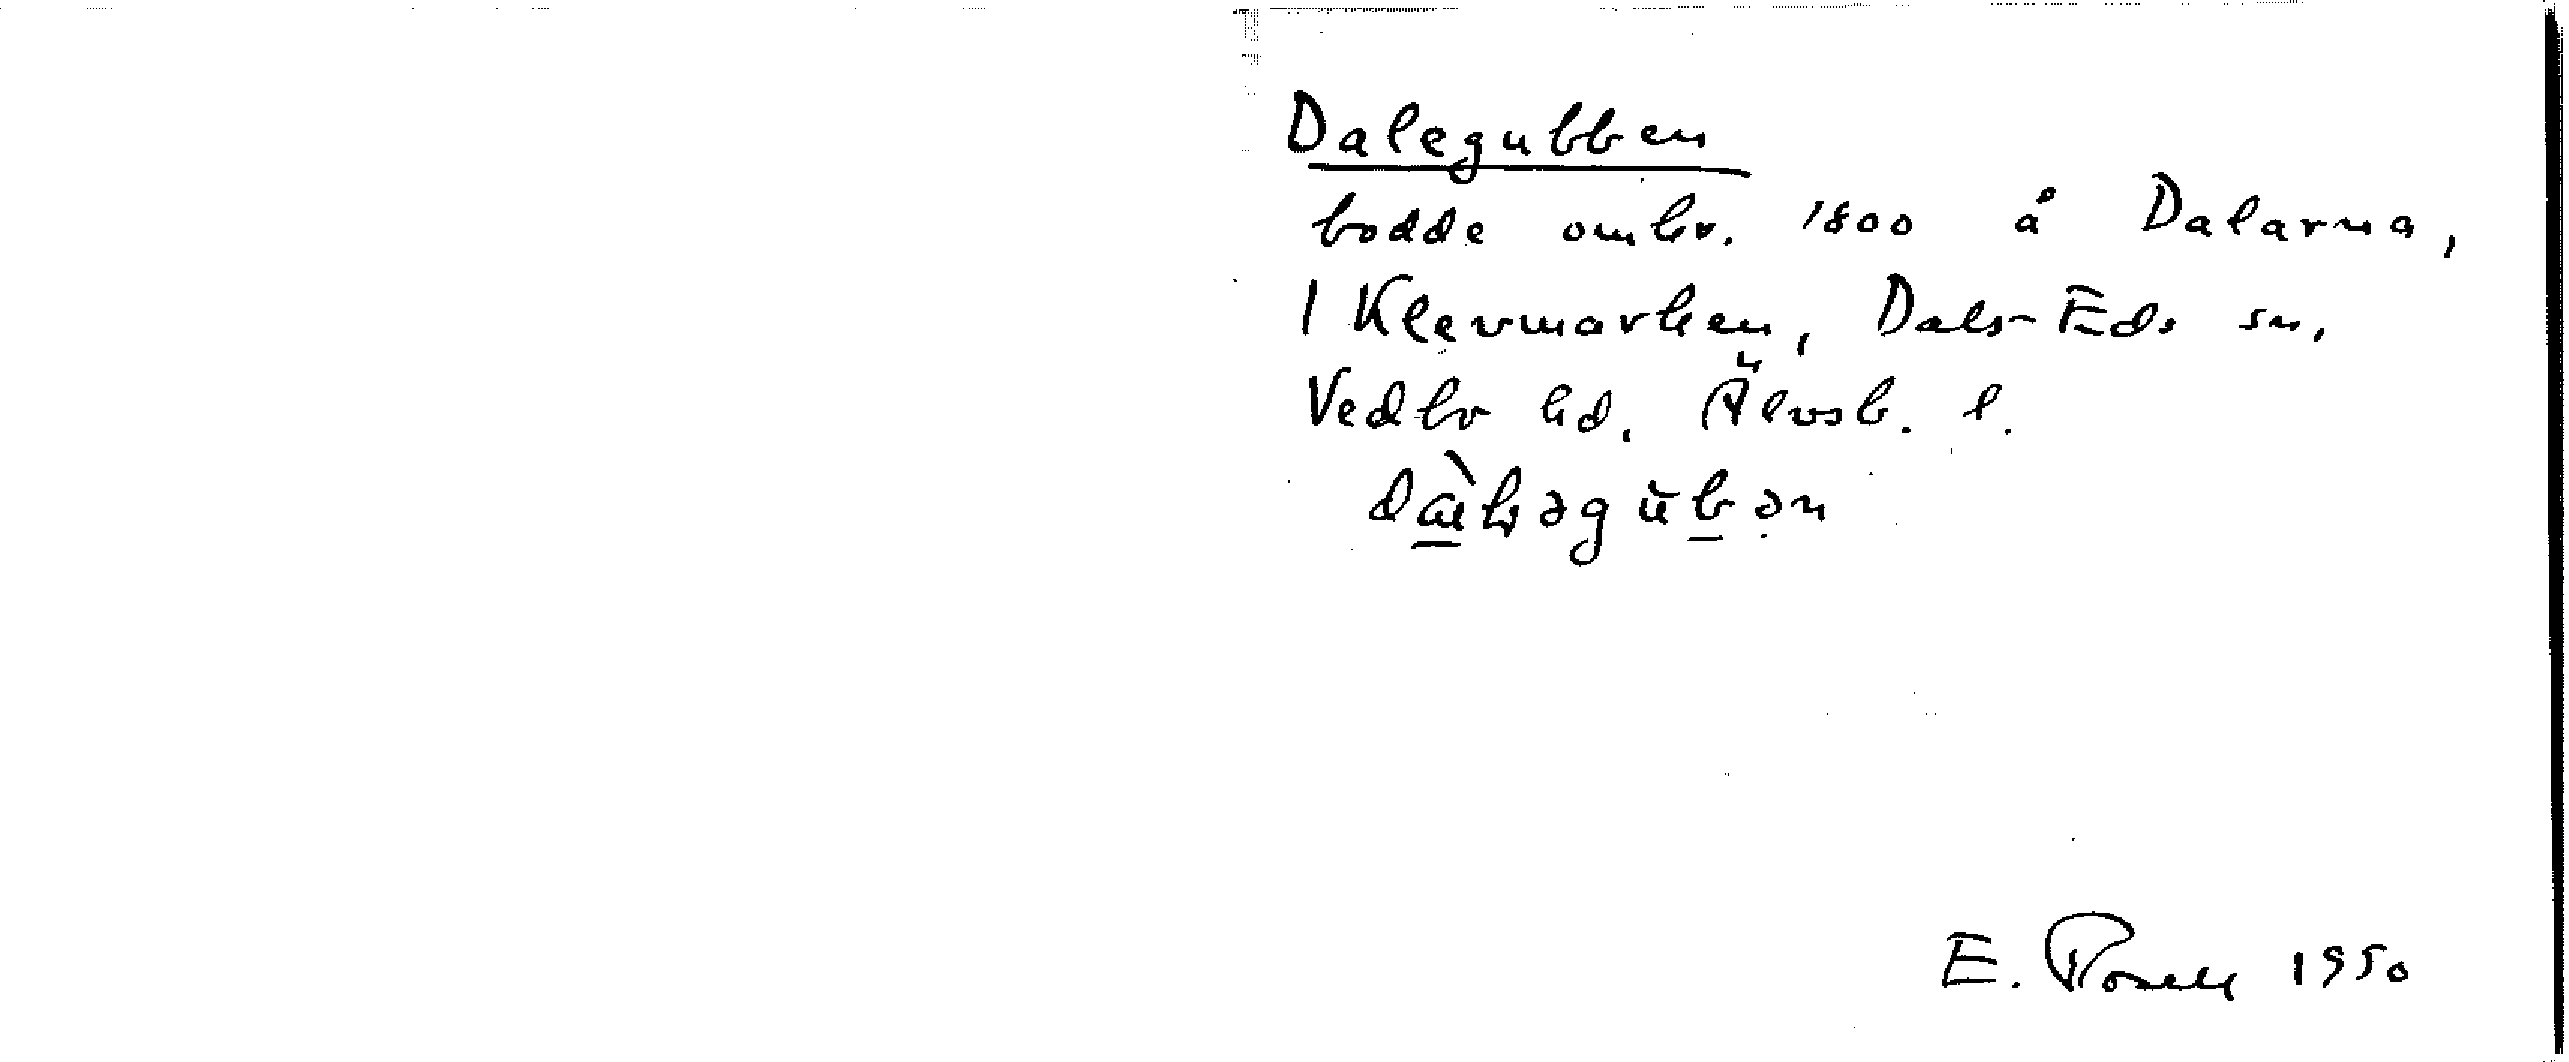 Dalegubben
bodde omkr. 1800 å Dalarna,
1 Klevmarken, Dals-Eds sn,
Vedbo hd, Älvsb. l.
E. Rosell 1950